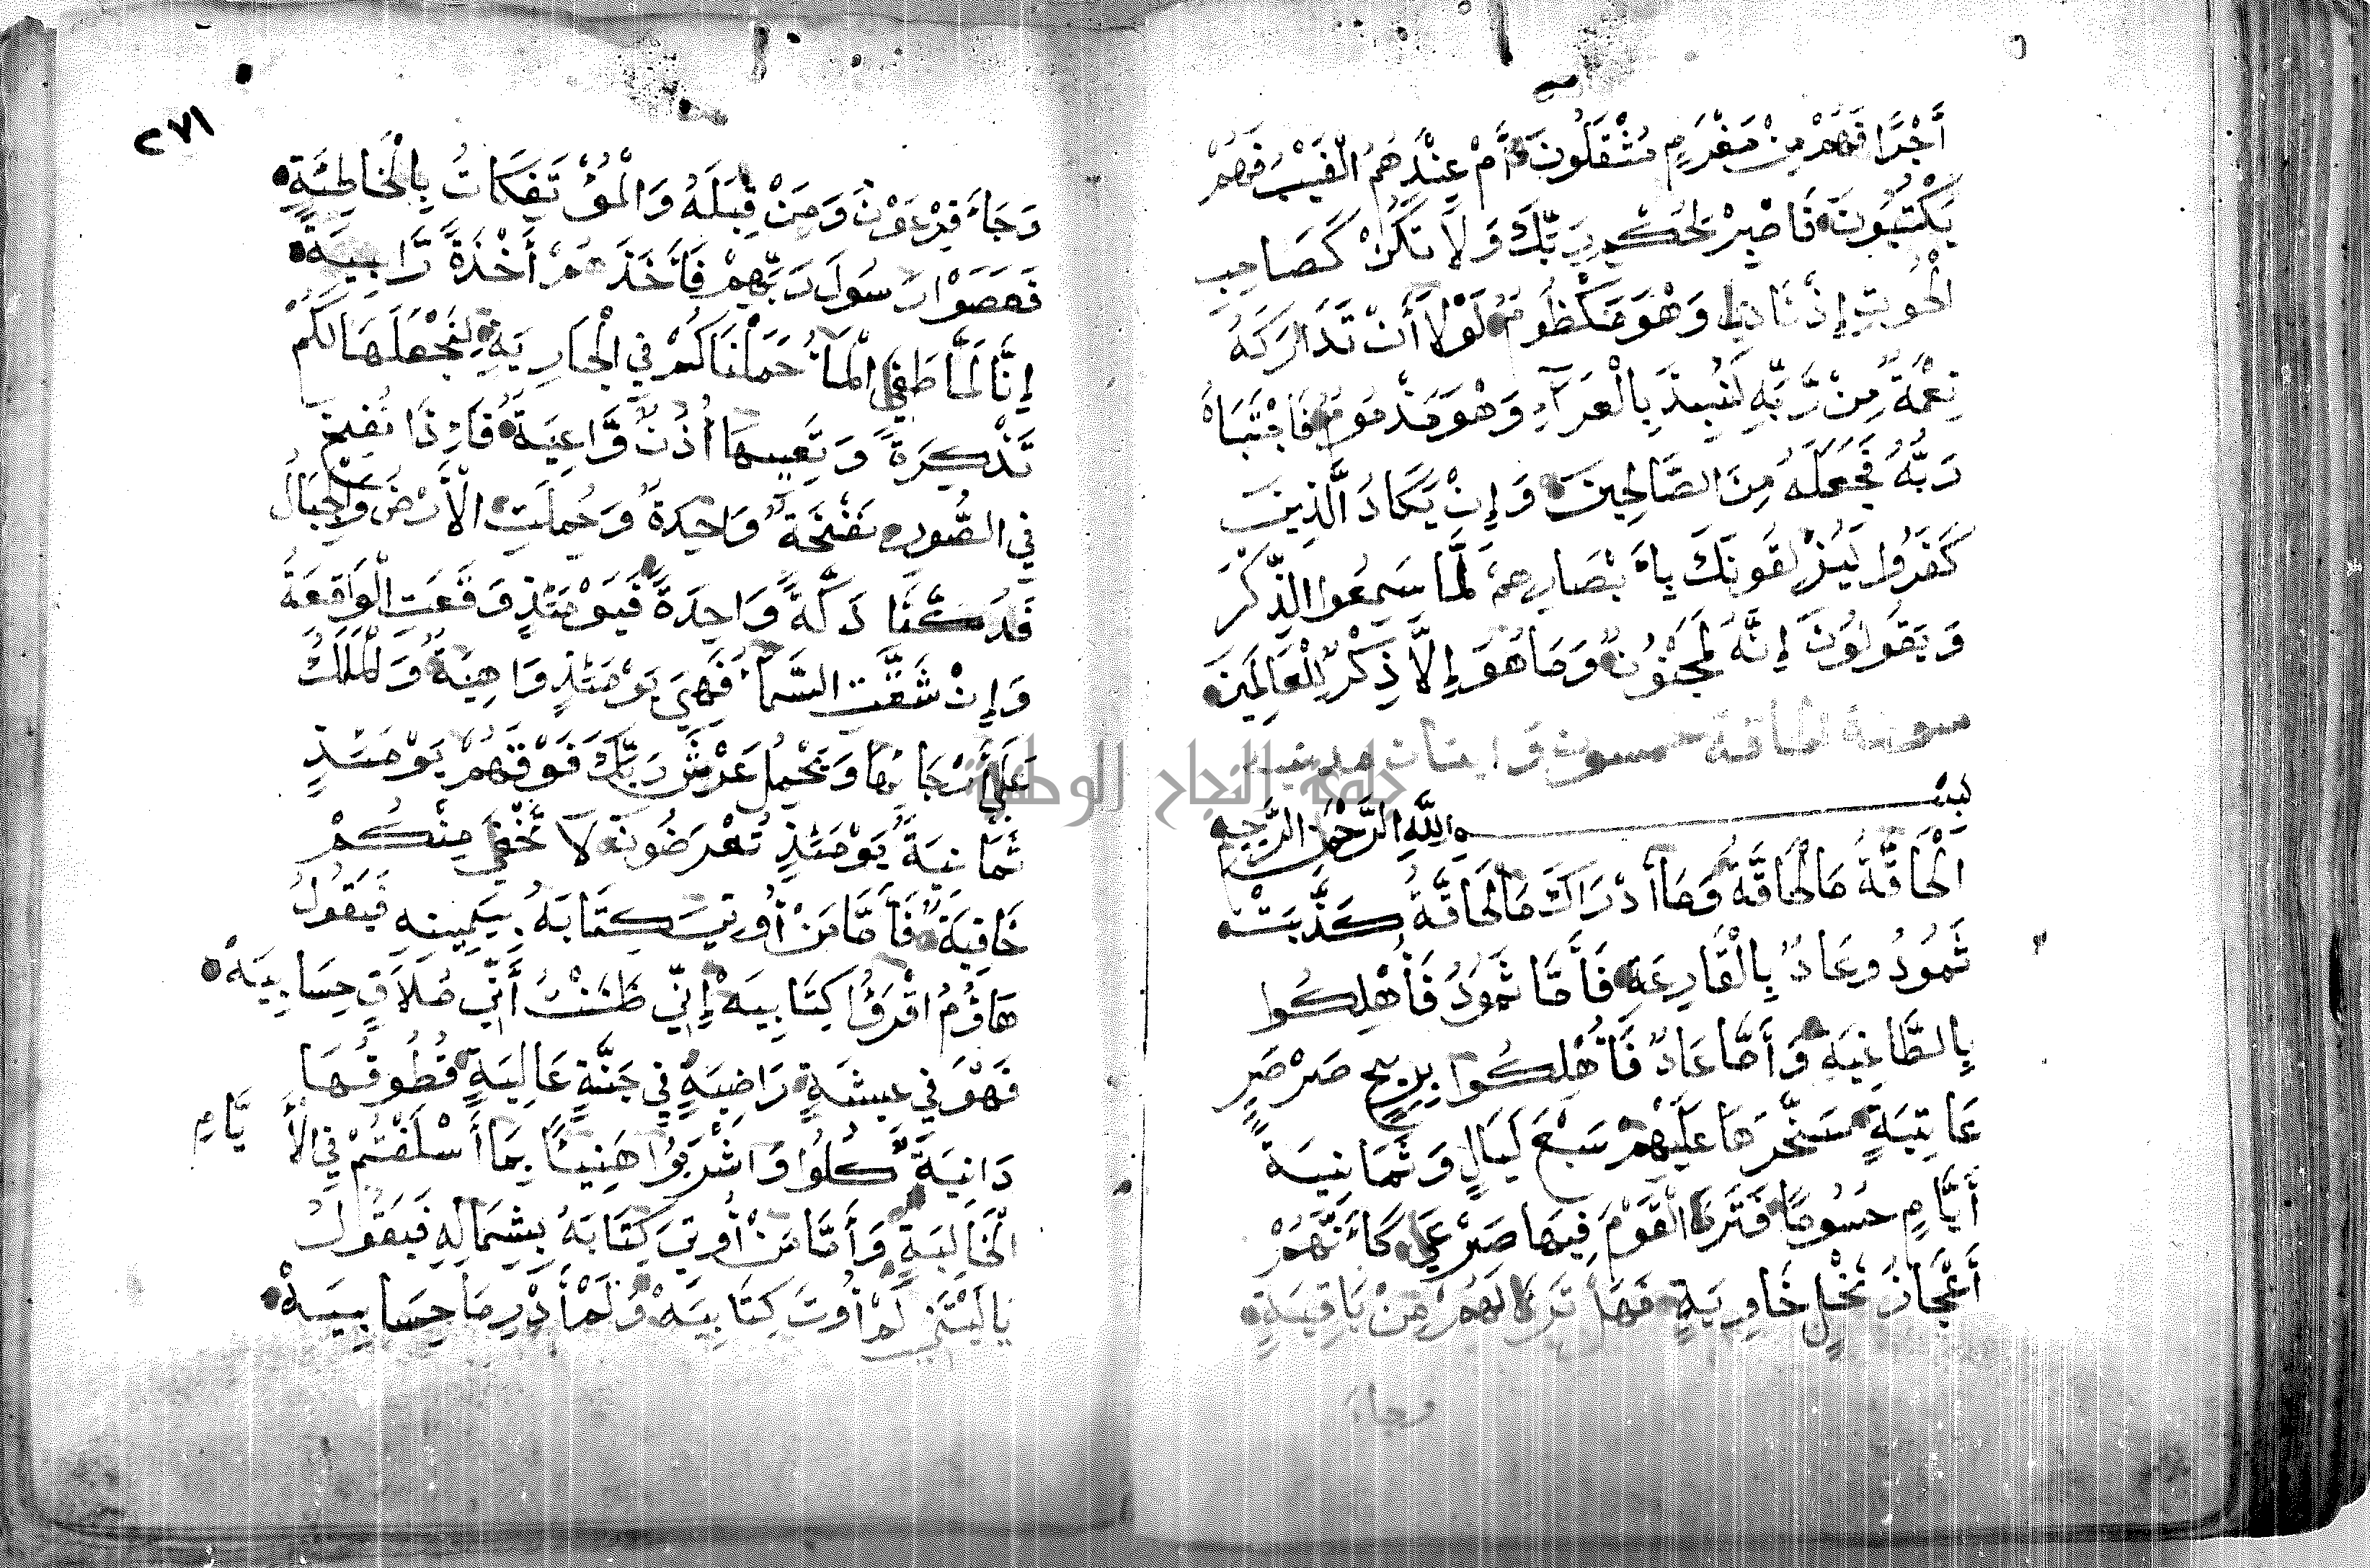 أَجْرًا فَهُمْ مِنْ مَغْرَمٍ مُثْقَلُونَ أَمْ عِنْدَهُمُ الْغَيْبُ فَهُمْ
يَكْتُبُونَ فَاصْبِرْ لِحُكْمِ رَبِّكَ وَلَا تَكُنْ كَصَاحِبِ
الْحُوتِ إِذْ نَادَى وَهْوَ مَكْظُومٌ لَوْلَا أَنْ تَدَارَكَهُ
نِعْمَةٌ مِنْ رَّبِّهِ لَنُبِذَ بِالْعَرَآءِ وَهْوَ مَذْمُومٌ فَاجْتَبَاهُ
رَبُّهُ فَجَعَلَهُ مِنَ الصَّالِحِينَ وَإِنْ يَكَادُ الَّذِينَ
كَفَرُوا لَيُزْلِقُونَكَ بِأَبْصَارِهِمْ لَمَّا سَمِعُوا الذِّكْرَ
وَيَقُولُونَ إِنَّهُ لَمَجْنُونٌ وَمَا هُوَ إِلَّا ذِكْرٌ لِلْعَالَمِينَ
سورة الحاقة خمسون و
بسم اللَّهِ الرَّحْمَنِ الرَّحِيمِ
الْحَاقَّةُ مَا الْحَاقَّةُ وَمَا أَدْرَاكَ مَا الْحَاقَّةُ كَذَّبَتْ
ثَمُودُ وعَادٌ بِالْقَارِعَةِ فَأَمَّا ثَمُودُ فَأُهْلِكُوا
بِالطَّاغِيَةِ وَأَمَّا عَادٌ فَأُهْلِكُوا بِرِيحٍ صَرْصَرٍ
عَاتِيَةٍ سَخَّرَهَا عَلَيْهِمْ سَبْعَ لَيَالٍ وَثَمَانِيَةَ
أَيَّامٍ حُسُومًا فَتَرَى الْقَوْمَ فِيهَا صَرْعَى كَأَنَّهُمْ
أَعْجَازُ نَخْلٍ خَاوِيَةٍ فَهَلْ تَرَى لَهُمْ مِنْ بَاقِيَةٍ
وجاء
٢٧١
وَجَاءَ فِرْعَوْنَ وَمَنْ قِبَلَهُ وَالْمُؤْتَفِكَاتُ بِالْخَاطِئَةِ
فَعَصَوْا رَسُولَ رَبِّهِمْ فَأَخَذَهُمْ أَخْذَةً رَّابِيَةً
إِنَّا لَمَّا طَغَى الْمَاءُ حَمَلْنَاكُمْ فِي الْجَارِيَةِ لِنَجْعَلَهَا لَكُمْ
تَذْكِرَةً وَتَعِيهَا أُذُنٌ وَّاعِيَةٌ فَإِذَا نُفِخَ
فِي الصُّورِ نَفْخَةٌ وَاحِدَةٌ وَحُمِلَتِ الْأَرْضُ وَالْجِبَالُ
فَدُكَّتَا دَكَّةً وَاحِدَةً فَيَوْمَئِذٍ وَقَعَتِ الْوَاقِعَةُ
وَانْشَقَّتِ السَّمَاءُ فَهِيَ يَوْمَئِذٍ وَاهِيَةٌ وَالْمَلَكُ
عَلَى أَرْجَائِهَا وَيَحْمِلُ عَرْشَ رَبِّكَ فَوْقَهُمْ يَوْمَئِذٍ
ثَمَانِيَةٌ يَوْمَئِذٍ تُعْرَضُونَ لَا تَخْفَى مِنْكُمْ
خَافِيَةٌ فَأَمَّا مَنْ أُوتِيَ كِتَابَهُ بِيَمِينِهِ فَيَقُولُ
هَاؤُمُ اقْرَؤُا كِتَابِيَهْ إِنِّي ظَنَنْتُ أَنِّي مُلَاقٍ حِسَابِيَهْ
فَهْوَ فِي عِيشَةٍ رَاضِيَةٍ فِي جَنَّةٍ عَالِيَةٍ قُطُوفُهَا
دَانِيَةٌ كُلُوا وَاشْرَبُوا هَنِيئًا بِمَا أَسْلَفْتُمْ فِي الْأَيَّامِ
الْخَالِيَةِ وَأَمَّا مَنْ أُوتِيَ كِتَابَهُ بِشِمَالِهِ فَيَقُولُ
يَالَيْتَنِي لَمْ أُوتَ كِتَابِيَهْ وَلَمْ أَدْرِ مَا حِسَابِيَهْ
جامعة النجاح الوطنية